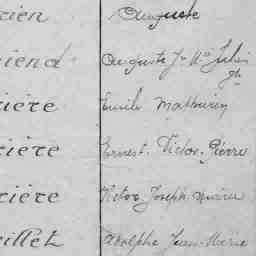 rien Auguste
iend Auguste Jn Mie Julien
rière Emile Mathurin
rière Ernest-Victor-Pierre
rière Victor Joseph-Marie
illet Adolphe Jean-Marie